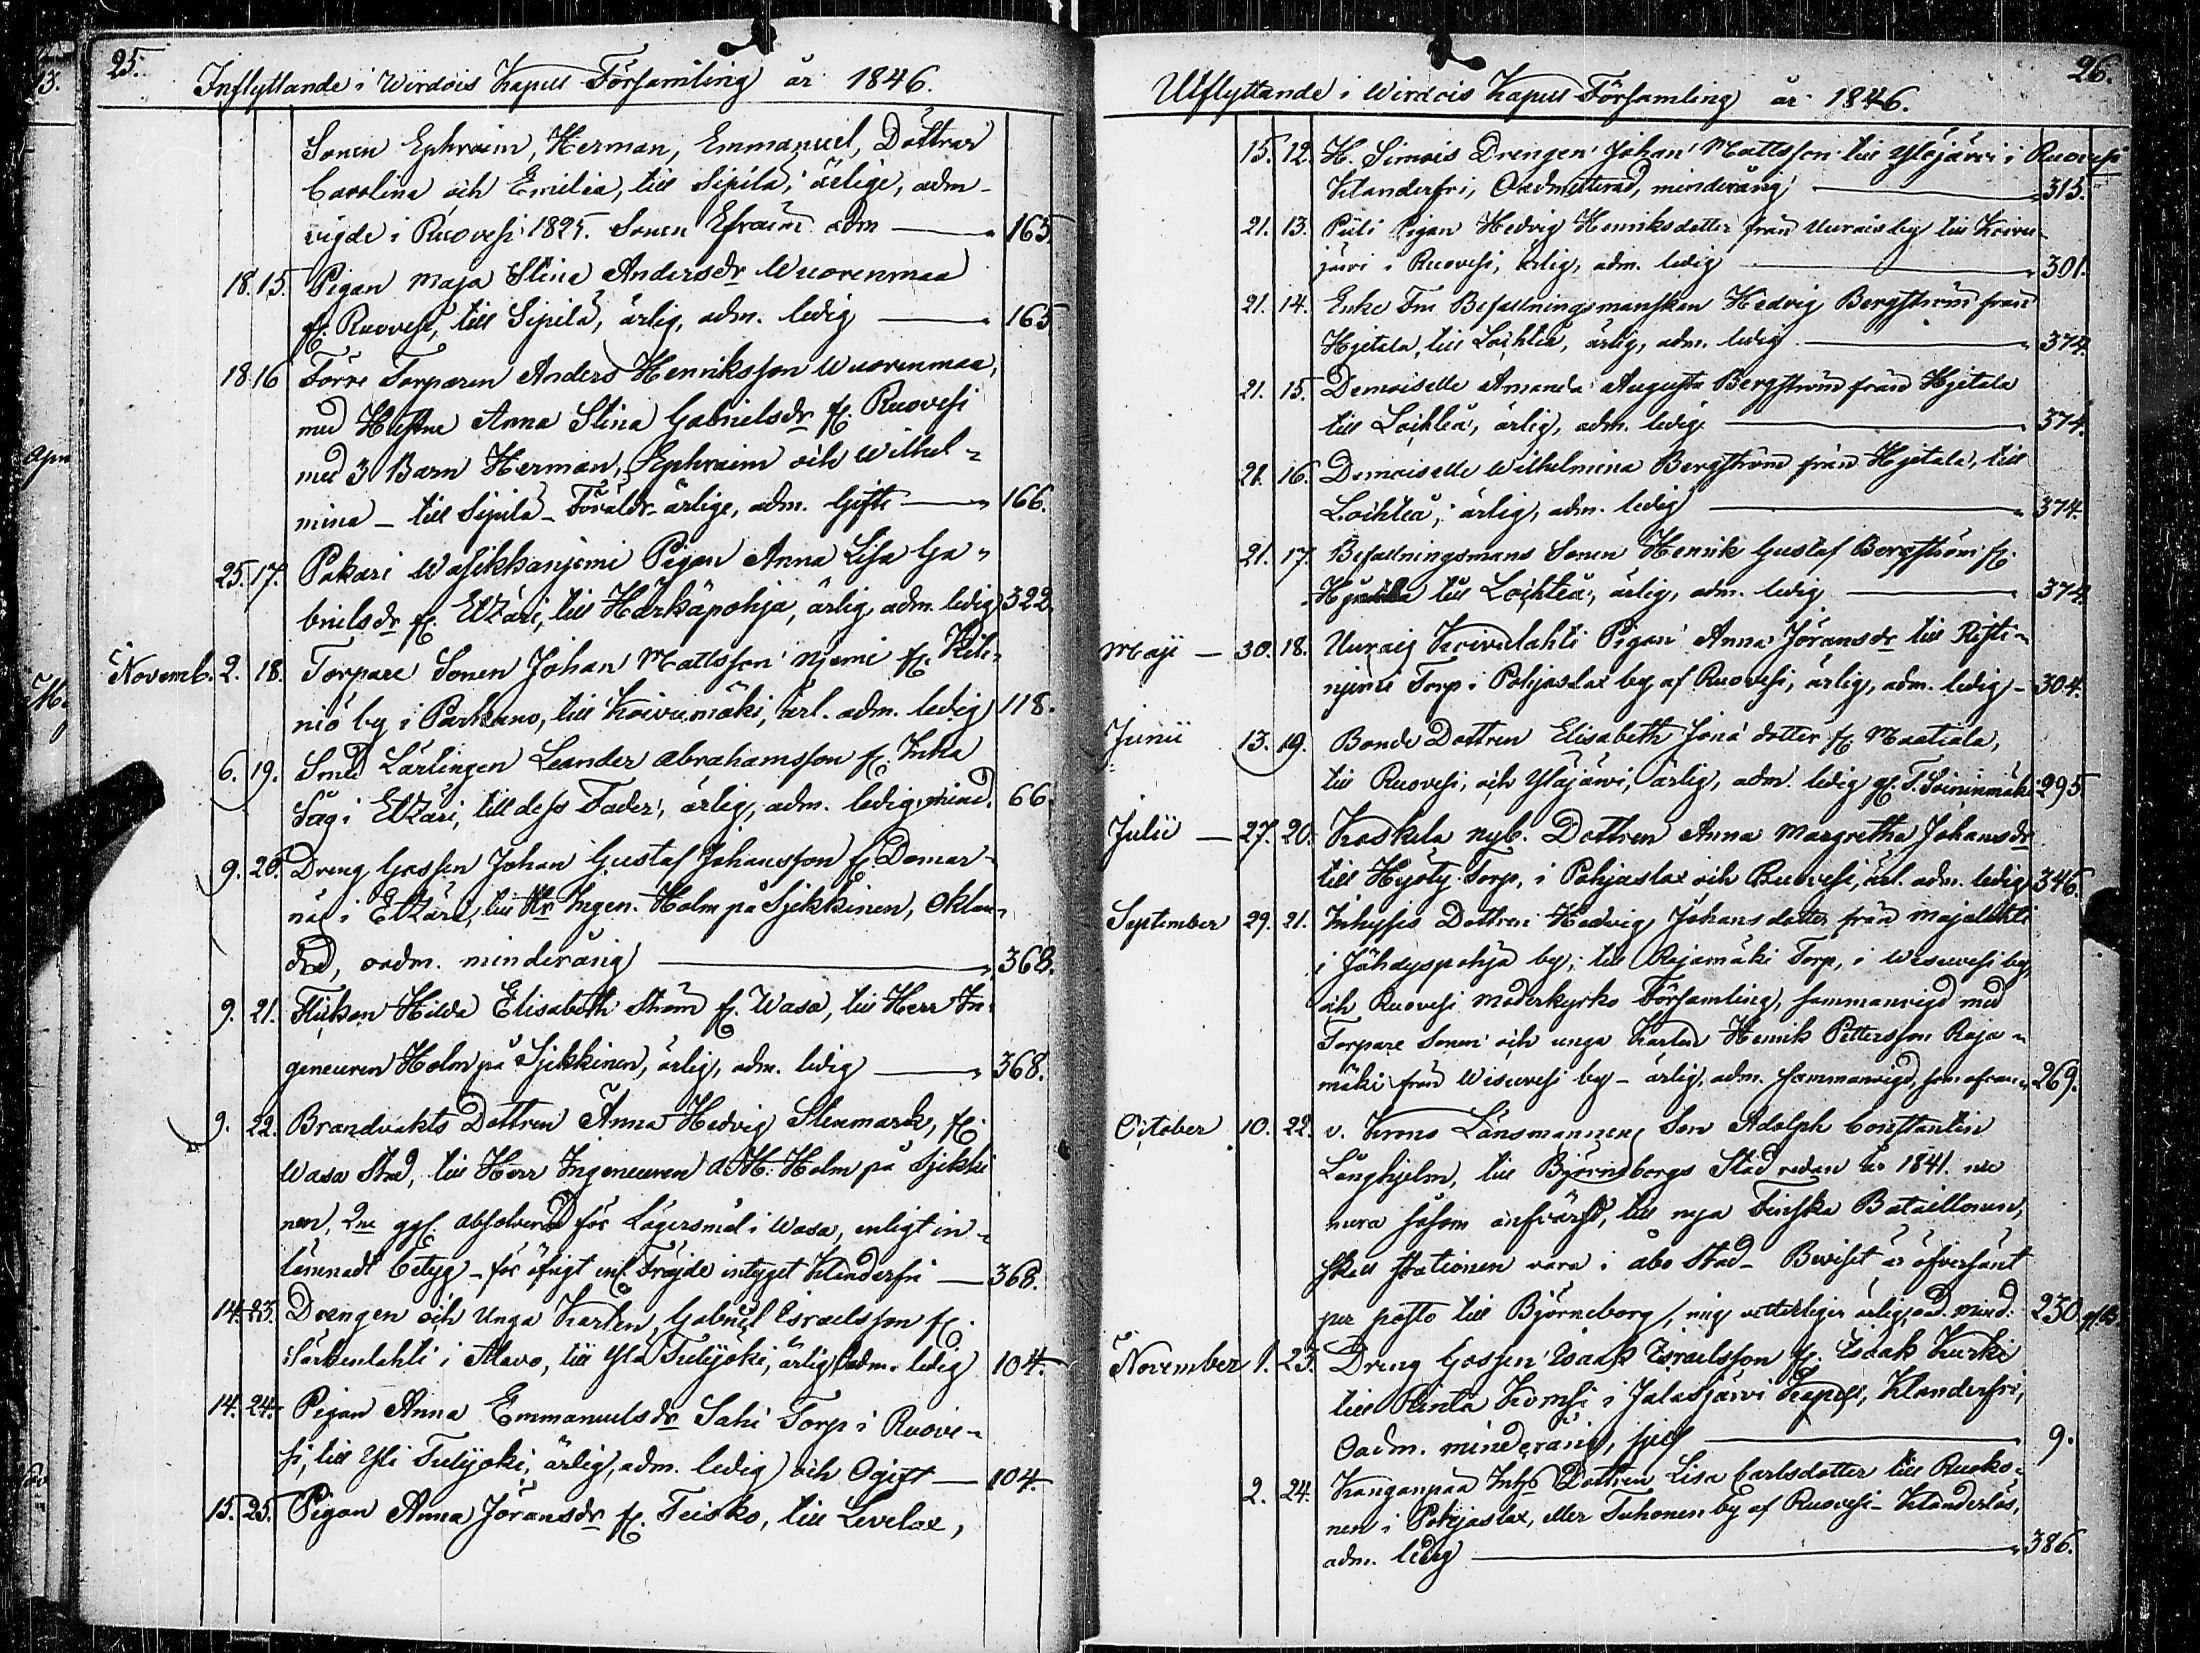 25.
Inflyttande i Wirdois Kapell Församling år 1846.
Sonen Ephraim, Herman, Emmanuel, Döttrar
Carolina och Emilia, till Sipilä, ärlige, adm-
vigde i Ruovesi 1825. Sonen Efraim adm — 165
18. 15. Pigan Maja Stina Andersdr Wuorenmaa
fr. Ruovesi, till Sipilä, ärlig, adm. ledig — 165
18 16 Förre Torparen Anders Henriksson Wuorenmaa,
med Hustru Anna Stina Gabrielsdr fr. Ruovesi
med 3 Barn Herman, Ephraim och Wilhel-
mina - till Sipilä - Föräldr. ärlige, adm. Gifte — 166.
25. 17. Pakari Wasikkanjemi Pigan Anna Lisa Ga-
brielsdr fr. Etzäri, till Härkäpohja, ärlig, adm. ledig 322.
Novemb. 2. 18. Torpare Sonen Johan Mattsson Njemi fr. Kih-
niö by i Parkano, till Koivumäki, ärl. adm. ledig 118.
6. 19. Smed Lärlingen Leander Abrahamsson fr. Inha
Såg i Etzäri, till dess Fader, ärlig, adm. ledig, mind. 66.
9. 20. Dreng Gossen Johan Gustaf Johansson fr. Domar-
näs i Etzäri, till Hr Ingen. Holm på Sjekkinen, Oklan-
drad, oadm. minderårig — 368.
9. 21. Flickan Hilda Elisabeth Ström fr. Wasa, till Herr In-
geneuren Holm på Sjekkinen, ärlig, adm. ledig — 368.
9. 22. Brandvakts Dottren Anna Hedvig Stenmark, fr.
Wasa Stad, till Herr Ingeneuren A.M. Holm på Sjekki
nen, 2ne ggr. absolverad för Lägersmål i Wasa, enligt in-
lämnadt betyg - för öfrigt enl. Fräjde intyget Klanderfri — 368.
14. 23. Drengen och Unga Karlen Gabriel Israelsson fr.
Särkenlahti i Alavo, till Ylä Tulijoki, ärlig, adm. ledig 104.
14. 24. Pigan Anna Emmanuelsdr Sahi Torp i Ruove-
si, till Yli Tulijoki, ärlig, adm. ledig och Ogift — 104.
15. 25. Pigan Anna Jöransdr fr. Teisko, till Levelax,
26.
Utflyttande i Wirdois Kapell Församling år 1846.
15. 12. H. Simois Drengen Johan Mattsson till Ylejärvi i Ruovesi
Klanderfri, Oadmitterad, minderårig — 315.
21. 13. Pigan Hedvig Henriksdotter från Uurais by till Koivu-
järvi i Ruovesi, ärlig, adm. ledig — 301.
21. 14. Enke Fru Befallningsmanskan Hedvig Bergström från
Hjetala, till Lochteå, ärlig, adm. ledig — 374.
21. 15. Demoiselle Amanda Augusta Bergström från Hjetala
till Lochteå, ärlig, adm. ledig — 374.
21. 16. Demoiselle Wilhelmina Bergström från Hjetala, till
Lochteå, ärlig, adm. ledig — 374.
21. 17. Befallningsmans Sonen Henrik Gustaf Bergström fr.
Hjetala till Lochteå, ärlig, adm. ledig — 374.
Maji — 30. 18. Uurais Koivulahti Pigan Anna Jöransdr till Risti-
njemi Torp i Pohjaslax by af Ruovesi, ärlig, adm. ledig - 304.
Junii 13. 19. Bonde Dottren Elisabeth Jonä dotter fr. Maatiala,
till Ruovesi, och Yläjärvi, ärlig, adm. ledig fr. T. Soininmäki 295
Julii — 27. 20. Koskela nyb. Dottren Anna Margretha Johansdr
till Hyöty Torp, i Pohjaslax och Ruovesi, ärl. adm. ledig 346.
September 29. 21. Inhyses Dottren Hedvig Johansdotter från Majalahti
i Jähdyspohja by, till Rajamäki Torp, i Wisuvesi by,
och Ruovesi Moderkyrko Församling, sammanvigd med
Torpare Sonen och unga Karlen Henrik Pettersson Raja-
mäki från Wisuvesi by - ärlig, adm. sammanvigd, som ofvan 269.
October 10. 22. v. Krono Länsmannens Son Adolph Constantin
Långhjelm, till Björneborgs Stad redan år 1841. nu
mera såsom anförvandt, till nya Finska Bataillonen,
skall stationen vara i Åbo Stad - Beviset är öfversänt
per posto till Björneborg, mig vetterligen ärlig, oad. mind. 230
November 1. 23. Dreng Gossen Isaak Israelsson fr. Isaak Kurki
till Rinta Komsi i Jalasjärvi Kapell, Klanderfri,
Oadm. minderårig — 9.
2. 24. Kanganpää Inhs Dottren Lisa Carlsdotter till Ruoko-
nen i Pohjaslax, eller Tuhonen by af Ruovesi - Klanderlös,
adm. ledig — 386.